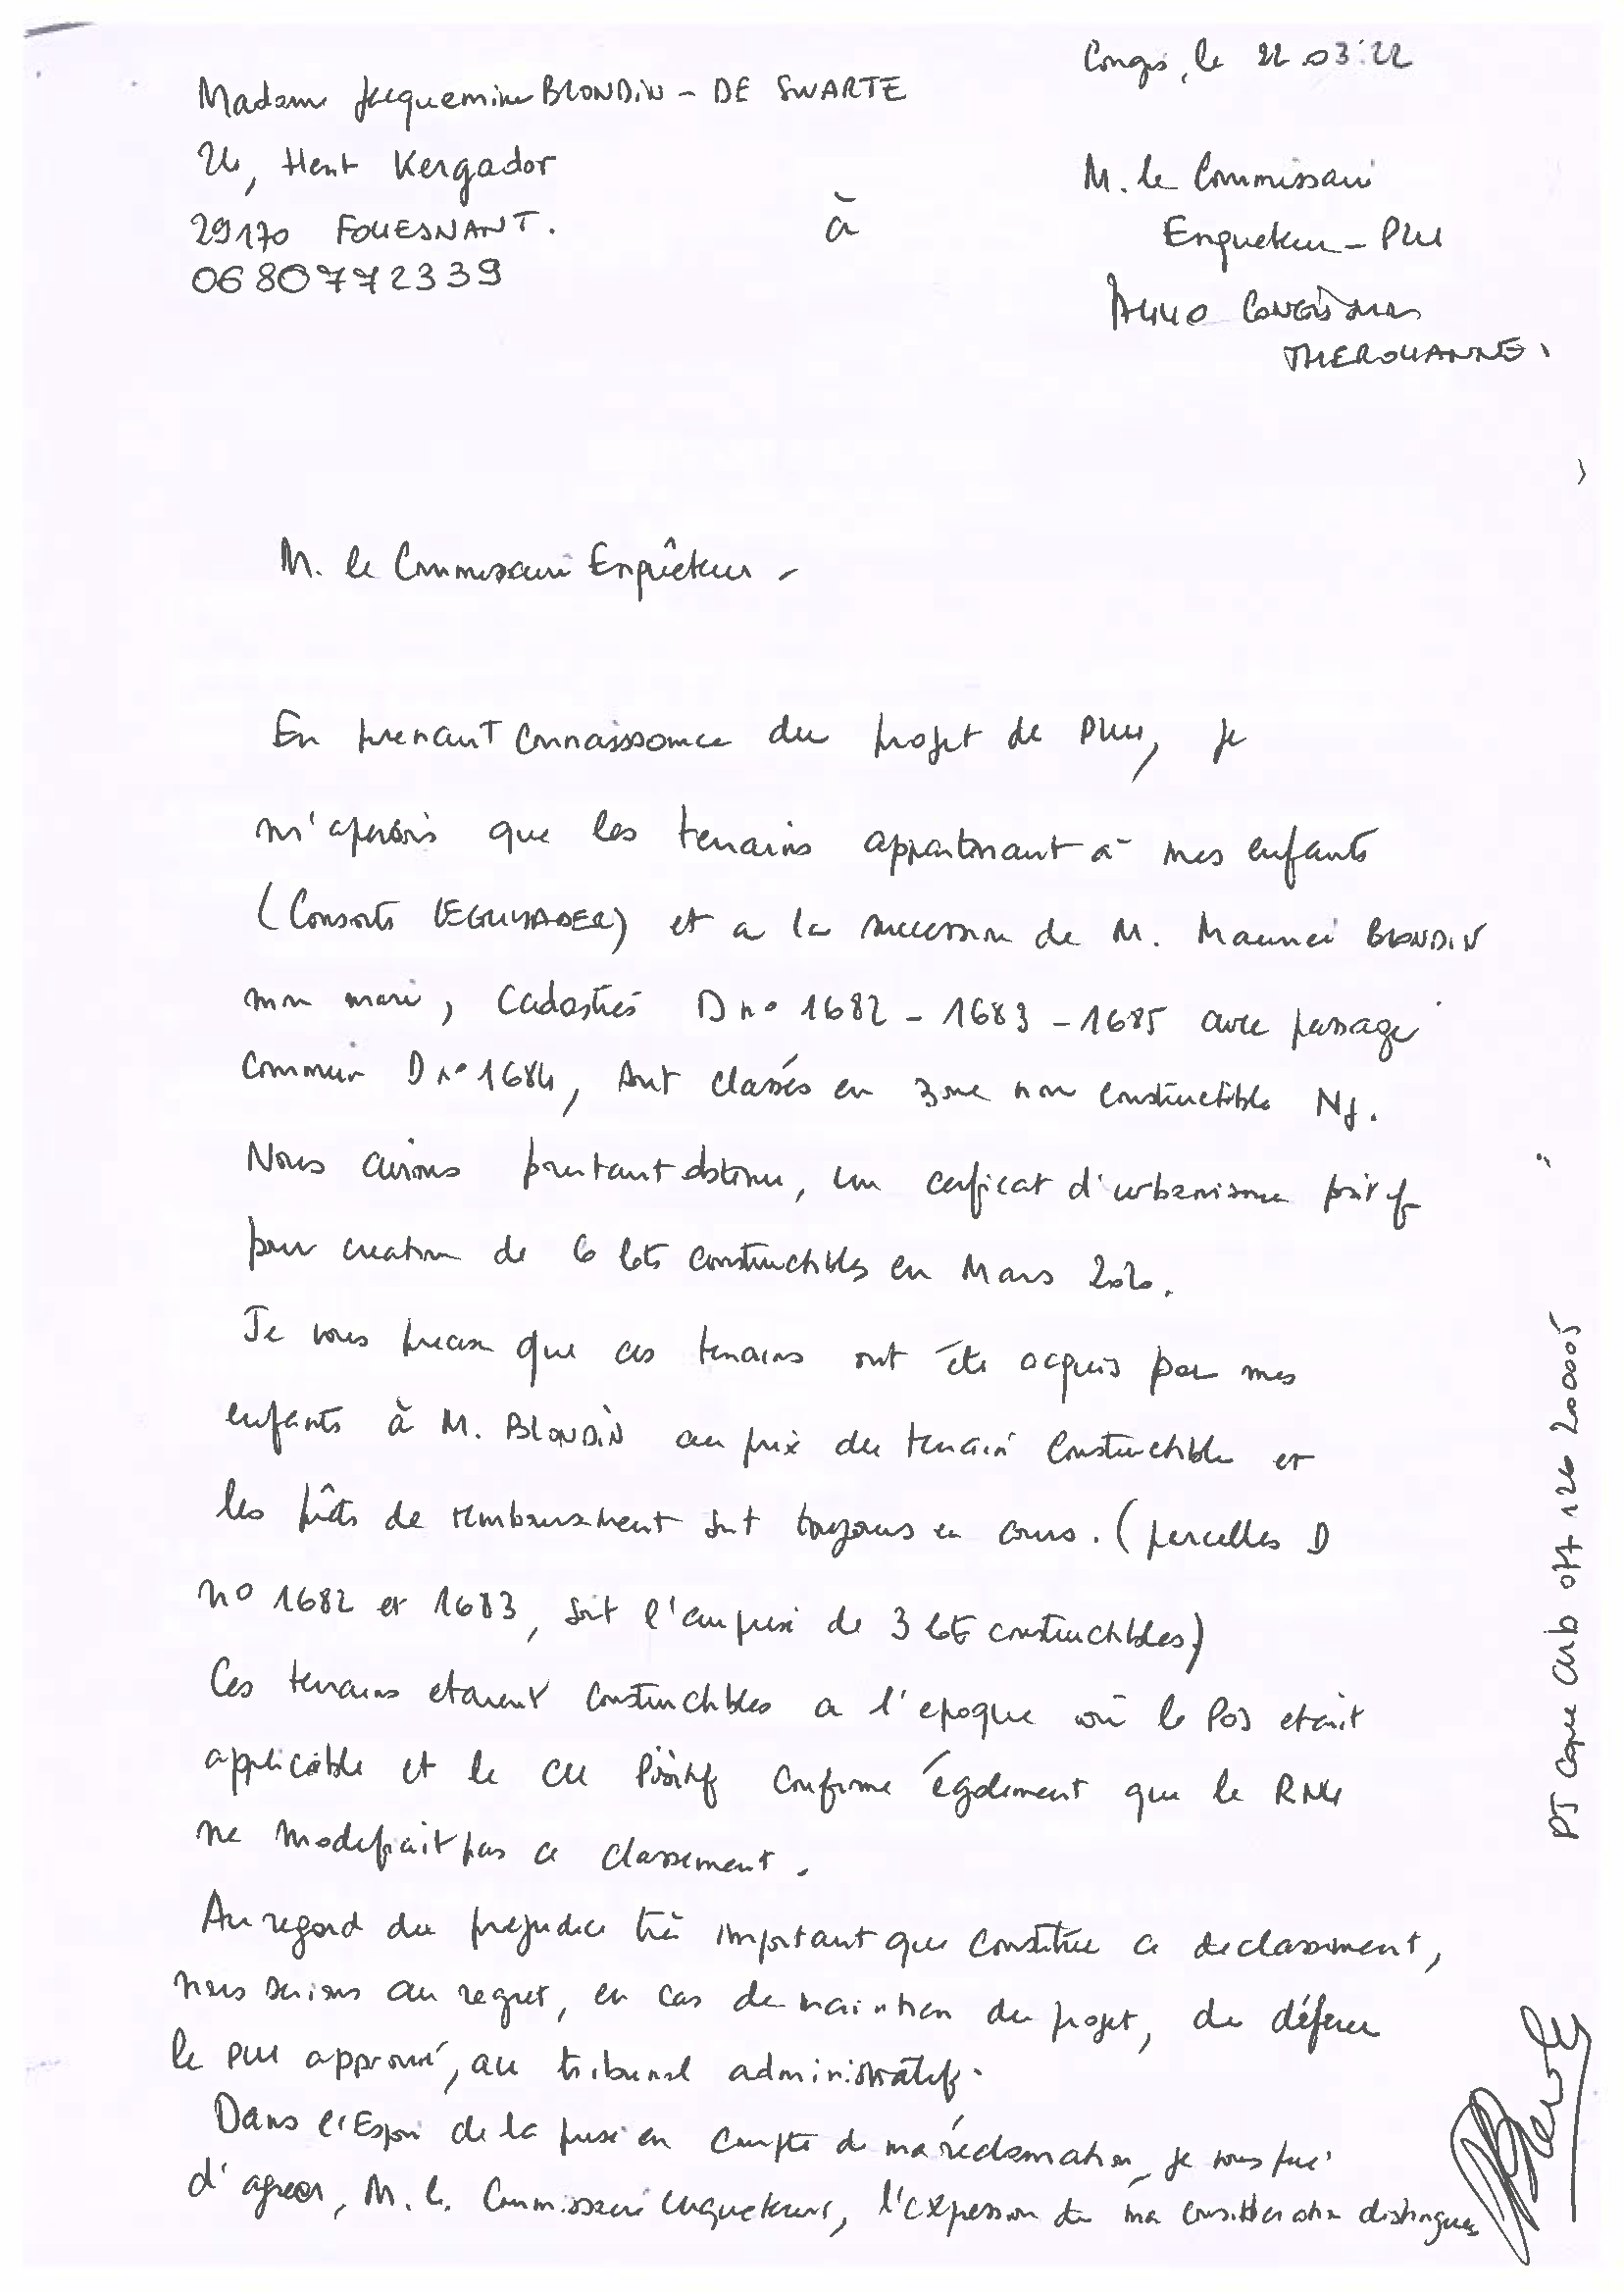 Congis, le 22.03.22
Madame Jacquemine BLONDIN - DE SWARTE
24, Hent Kergador
29170 FOUESNANT.
0680772339
à
M. le Commissaire
Enqueteur - PLU
77440 CONGIS sur
THEROUANNE.
M. le Commissaire Enquêteur -
En prenant connaissance du projet de PLU, je
m'aperçois que les terrains appartenant à mes enfants
(Consorts) et a la succession de M. Maurice BLONDIN
mon mari, Cadastrés D n° 1682 - 1683 - 1685 avec passage
commun D n° 1684, sont classés en zone non constructible Nj.
Nous avions pourtant obtenu, un cerficat d'urbanisme positif
pour creation de 6 lots constructibles en Mars 2020.
Je vous precise que ces terrains ont été acquis par mes
enfants à M. BLONDIN au prix du terrain constructible et
les prêts de remboursement sont toujours en cours. (parcelles D
n° 1682 et 1683, soit l'emprise de 3 lots constructibles)
Ces terrains etaient constructibles a l'epoque où le POS etait
applicable et le CU Positif confirme également que le RNU
ne modifiait pas ce classement.
Au regard du prejudice très important que constitue ce declassement,
nous serions au regret, en cas de maintien du projet, de déferer
le PLU approuvé, au tribunal administratif.
Dans l'Espoir de la prise en compte de ma réclamation, je vous prie
d'agreer, M. le Commissaire enqueteur, l'expression de ma consideration distinguée
PJ copie CUb 077 126 2000005